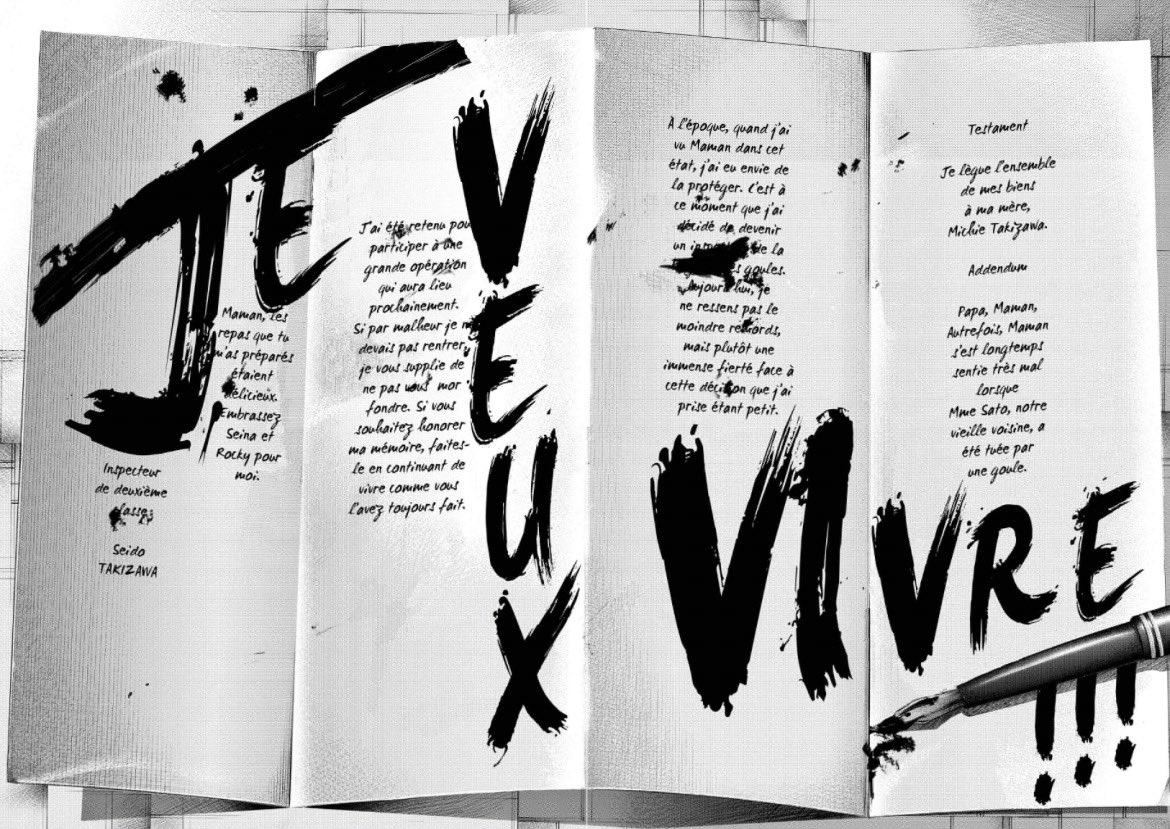 Testament
Je lègue l'ensemble
de mes biens
à ma mère,
Michie Takizawa.
Addendum
Papa, Maman,
Autrefois, Maman
s'est longtemps
sentie très mal
lorsque
Mme Sato, notre
vieille voisine, a
été tuée par
une goule.
À l'époque, quand j'ai
vu Maman dans cet
état, j'ai eu envie de
la protéger. C'est à
ce moment que j'ai
décidé de devenir
un de la
goules.
Aujourd'hui, je
ne ressens pas le
moindre remords,
mais plutôt une
immense fierté face à
cette décision que j'ai
prise étant petit.
J'ai été retenu pour
participer à une
grande opération
qui aura lieu
prochainement.
Si par malheur je ne
devais pas rentrer,
je vous supplie de
ne pas vous mor
fondre. Si vous
souhaitez honorer
ma mémoire, faites-
le en continuant de
vivre comme vous
l'avez toujours fait.
Maman, les
repas que tu
m'as préparés
étaient
délicieux.
Embrassez
Seina et
Rocky pour
moi.
Inspecteur
de deuxième
classe
Seido
TAKIZAWA
JE
VEUX
VIVRE
!!!